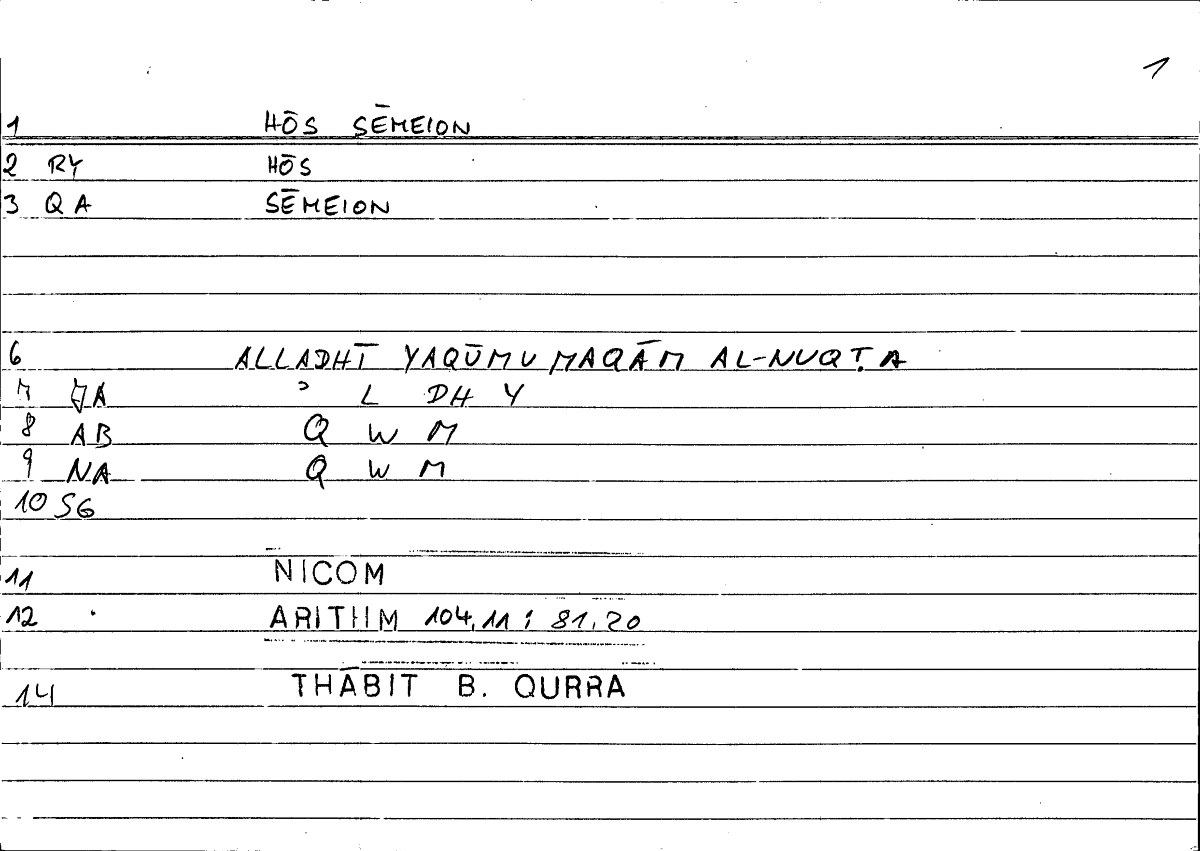 1
1 HŌS SĒMEION
2 RY HŌS
3 QA SĒMEION
6 ALLADHĪ YAQŪMU MAQĀM AL-NUQṬA
7 JA ʾ L DH Y
8 AB Q W M
9 NA Q W M
10 SG
11 NICOM
12 ARITHM 104,11 ; 81,20
14 THĀBIT B. QURRA